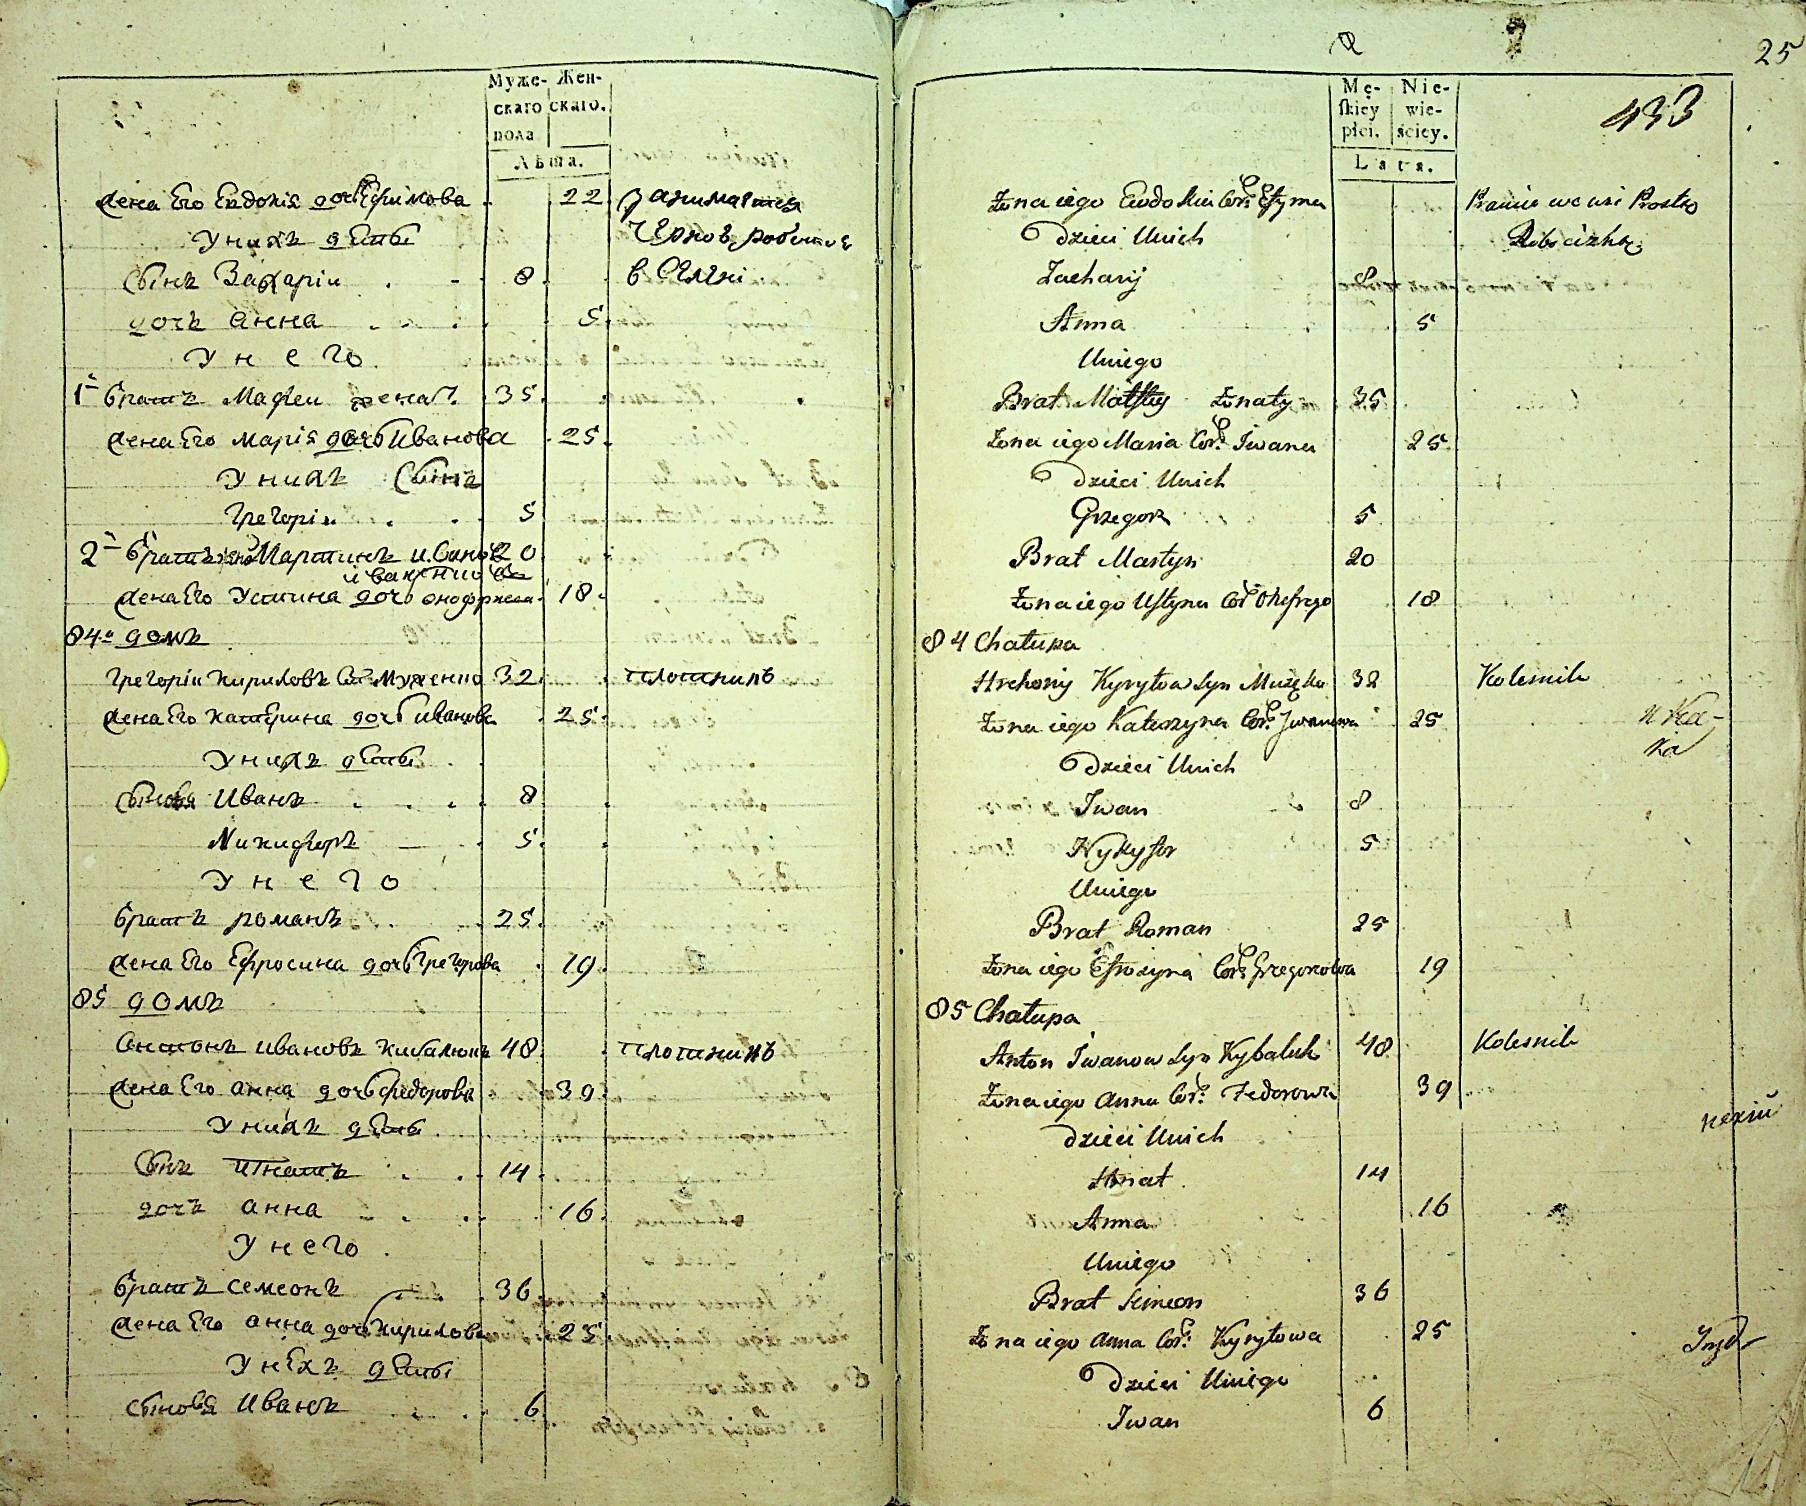 Муже- Жен-
скаго скаго.
пола
Лѣта.
жена Его Евдокія дочь Ефимова 22 занимается
У нихъ дѣти Чернов работою
Сынъ Захаріи 8 в Селѣні
дочь анна 5
У него
1 братъ Матѳеи женат. 35
жена Его Марія дочь Иванова 25
У нихъ Сынъ
Грегоріи 5
2 братъ Мартинъ 20
жена Его Устина дочь онофриева 18
84 домъ
Грегоріи Кириловъ С. Мужеико 32 плотникъ
жена Его Катерина дочь иванова 25
У нихъ дѣти
Сыновя Иванъ 8
Никифоръ 5
У него
братъ романъ 25
жена Его Ефросина дочь Грегорова 19
85 домъ
антонъ ивановъ Кибалюкъ 48 плотникъ
жена Его анна дочь федорова 39
У нихъ дѣти
Сынъ игнатъ 14
дочь анна 16
У него
братъ семеонъ 36
жена Его анна дочь Кирилова 25
У нихъ дѣти
сыновя Иванъ 6
25
433
Mę- Nie-
skiey wie-
płci. ściey.
Lata.
Żona iego Ewdokia Cor: Efyma Prawie we wsi Prosto
Dzieci Unich Robocizną
Zacharij 8
Anna 5
Uniego
Brat Matfiy Żonaty 35
Żona iego Maria Cor: Iwana 25
Dzieci Unich
Grzegorz 5
Brat Martyn 20
Żona iego Ustyna Cor: Onofrego 18
84 Chałupa
Hrehory Kyryłow Syn Mużeko 32 Kolesnik
Żona iego Katerzyna Cor: Jwanowa 25
Dzieci Unich
Iwan 8
Nykyfor 5
Uniego
Brat Roman 25
Żona iego Efrozyna Cor: Grzegorowa 19
85 Chałupa
Anton Iwanow Syn Kybaluk 48 Kolesnik
Żona iego Anna Cor: Fedorowa 39
Dzieci Unich
Hnat 14
Anna 16
Uniego
Brat Simeon 36
Żona iego Anna Cor: Kyryłowa 25
Dzieci Uniego
Iwan 6